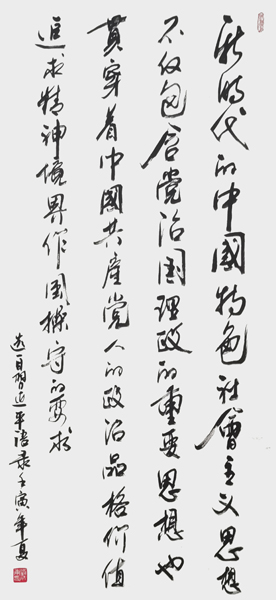 新时代的中國特色社會主义思想
不仅包含党治国理政的重要思想也
貫穿着中國共產党人的政治品格价值
追求精神境界作風操守的要求
选自習近平语录壬寅年夏